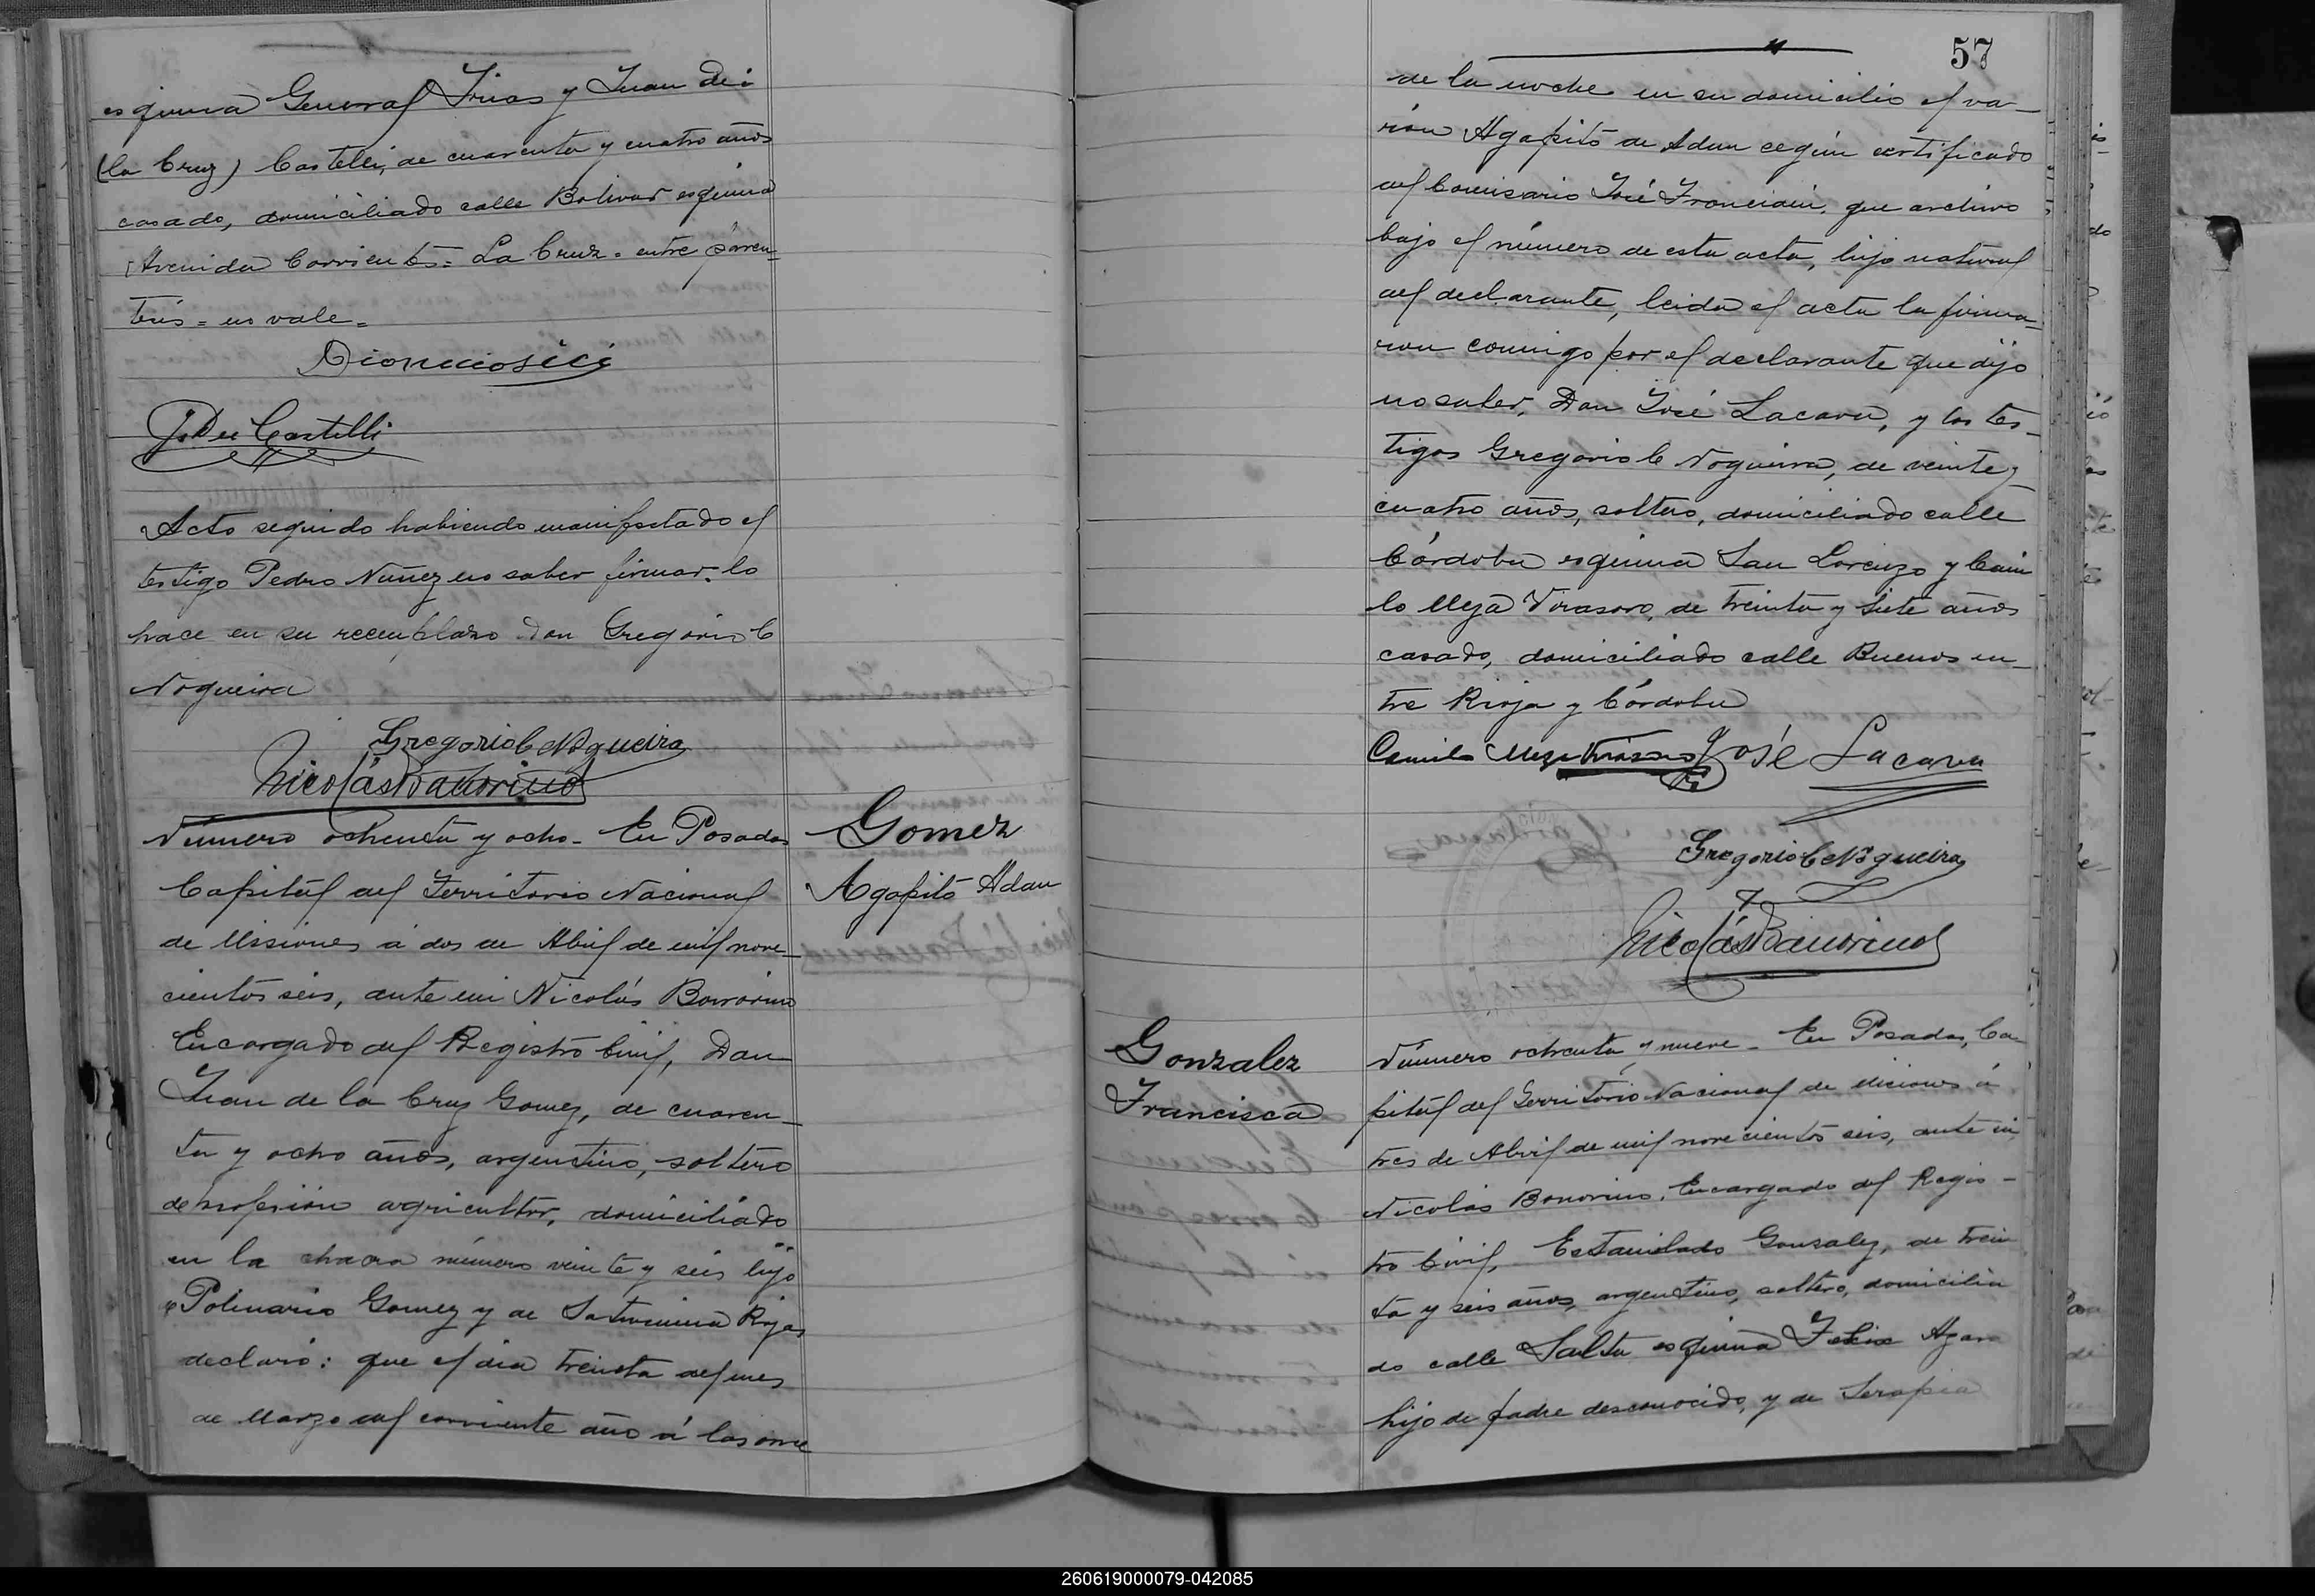 esquina General Frias y Juan Dei
(la Cruz) Castelli, de cuarenta y cuatro años
casado, domiciliado calle Bolivar esquina
Avenida Corrientes = La Cruz = entre páren-
tesis = no vale =
J. Dei Castelli
Acto seguido habiendo manifestado el
testigo Pedro Nuñez no saber firmar lo
hace en su reemplazo Don Gregorio C
Nogueira
Gregorio C Nogueira
Nicolás Bonorino
Gomez
Agapito Adan
Número ochenta y ocho - En Posadas
Capital del Territorio Nacional
de Misiones á dos de Abril de mil nove-
cientos seis, ante mi Nicolás Bonorino
Encargado del Registro Civil, Don
Juan de la Cruz Gomez, de cuaren-
ta y ocho años, argentino, soltero
de profesion agricultor, domiciliado
en la chacra número veinte y seis hijo
Polinario Gomez y de Saturnina Rojas
declaró: que el dia treinta del mes
de Marzo del corriente año á las once
57
de la noche en su domicilio el va-
ron Agapito de Adan según certificado
del Comisario José que archivo
bajo el número de esta acta, hijo natural
del declarante, leida el acta la firma-
ron conmigo por el declarante que dijo
no saber, Don José Lacava, y los tes-
tigos Gregorio C Nogueira, de veinte y
cuatro años, soltero, domiciliado calle
Córdoba esquina San Lorenzo y Cami
lo Meza Virasoro, de treinta y siete años
casado, domiciliado calle Buenos en-
tre Rioja y Córdoba
Camilo Meza Virasoro José Lacava
Gregorio C Nogueira
Nicolás Bonorino
Gonzalez
Francisca
Número ochenta y nueve - En Posadas, Ca
pital del Territorio Nacional de Misiones á
tres de Abril de mil novecientos seis, ante mi
Nicolás Bonorino, Encargado del Regis-
tro Civil, Estanislado Gonzalez, de trein
ta y seis años, argentino, soltero, domicilia
do calle Salta esquina Felix Azara
hijo de padre desconocido, y de Serapia
260619000079-042085